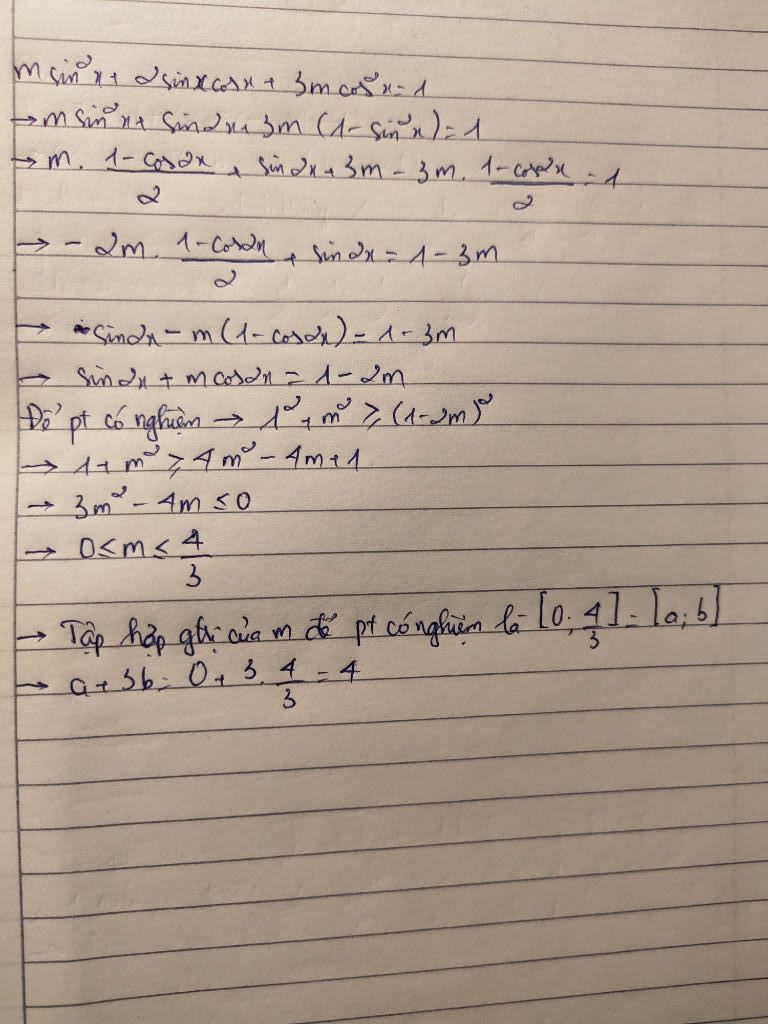 m sin²x + 2sinxcosx + 3m cos²x = 1
→ m sin²x + sin2x + 3m (1 - sin²x) = 1
→ m . \frac{1-cos2x}{2} + sin2x + 3m - 3m . \frac{1-cos2x}{2} = 1
→ - 2m . \frac{1-cos2x}{2} + sin2x = 1 - 3m
→ sin2x - m (1 - cos2x) = 1 - 3m
→ sin2x + m cos2x = 1 - 2m
Để pt có nghiệm → 1² + m² ≥ (1-2m)²
→ 1 + m² ≥ 4m² - 4m + 1
→ 3m² - 4m ≤ 0
→ 0 ≤ m ≤ \frac{4}{3}
→ Tập hợp gtrị của m để pt có nghiệm là [0; \frac{4}{3}] = [a; b]
→ a + 3b = 0 + 3 . \frac{4}{3} = 4